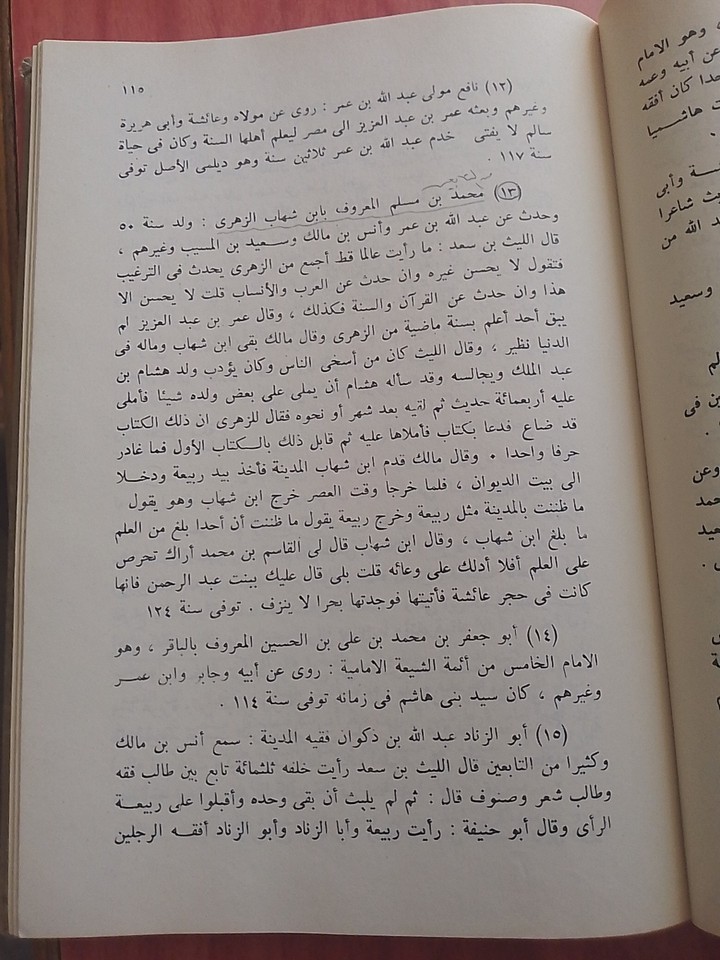 ١١٥
(١٢) نافع مولى عبد الله بن عمر : روى عن مولاه وعائشة وأبى هريرة
وغيرهم وبعثه عمر بن عبد العزيز الى مصر ليعلم أهلها السنة وكان فى حياة
سالم لا يفتى خدم عبد الله بن عمر ثلاثين سنة وهو ديلمى الأصل توفى
سنة ١١٧ .
(١٣) محمد بن مسلم المعروف بابن شهاب الزهرى : ولد سنة ٥٠
وحدث عن عبد الله بن عمر وأنس بن مالك وسعيد بن المسيب وغيرهم ،
قال الليث بن سعد : ما رأيت عالما قط أجمع من الزهرى يحدث فى الترغيب
فتقول لا يحسن غيره وان حدث عن العرب والأنساب قلت لا يحسن الا
هذا وان حدث عن القرآن والسنة فكذلك ، وقال عمر بن عبد العزيز لم
يبق أحد أعلم بسنة ماضية من الزهرى وقال مالك بقى ابن شهاب وماله فى
الدنيا نظير ، وقال الليث كان من أسخى الناس وكان يؤدب ولد هشام بن
عبد الملك ويجالسه وقد سأله هشام أن يملى على بعض ولده شيئا فأملى
عليه أربعمائة حديث ثم لقيه بعد شهر أو نحوه فقال للزهرى ان ذلك الكتاب
قد ضاع فدعا بكتاب فأملاها عليه ثم قابل ذلك بالكتاب الأول فما غادر
حرفا واحدا . وقال مالك قدم ابن شهاب المدينة فأخذ بيد ربيعة ودخلا
الى بيت الديوان ، فلما خرجا وقت العصر خرج ابن شهاب وهو يقول
ما ظننت بالمدينة مثل ربيعة وخرج ربيعة يقول ما ظننت أن أحدا بلغ من العلم
ما بلغ ابن شهاب ، وقال ابن شهاب قال لى القاسم بن محمد أراك تحرص
على العلم أفلا أدلك على وعائه قلت بلى قال عليك ببنت عبد الرحمن فانها
كانت فى حجر عائشة فأتيتها فوجدتها بحرا لا ينزف . توفى سنة ١٢٤
(١٤) أبو جعفر بن محمد بن على بن الحسين المعروف بالباقر ، وهو
الامام الخامس من أئمة الشيعة الامامية : روى عن أبيه وجابر وابن عمر
وغيرهم ، كان سيد بنى هاشم فى زمانه توفى سنة ١١٤ .
(١٥) أبو الزناد عبد الله بن ذكوان فقيه المدينة : سمع أنس بن مالك
وكثيرا من التابعين قال الليث بن سعد رأيت خلفه ثلثمائة تابع بين طالب فقه
وطالب شعر وصنوف قال : ثم لم يلبث أن بقى وحده وأقبلوا على ربيعة
الرأى وقال أبو حنيفة : رأيت ربيعة وأبا الزناد وأبو الزناد أفقه الرجلين
وهو الامام
عن أبيه وعمه
كان أفقه
هاشميا
وأبى
شاعرا
عبد الله من
وسعيد
فى
وعن